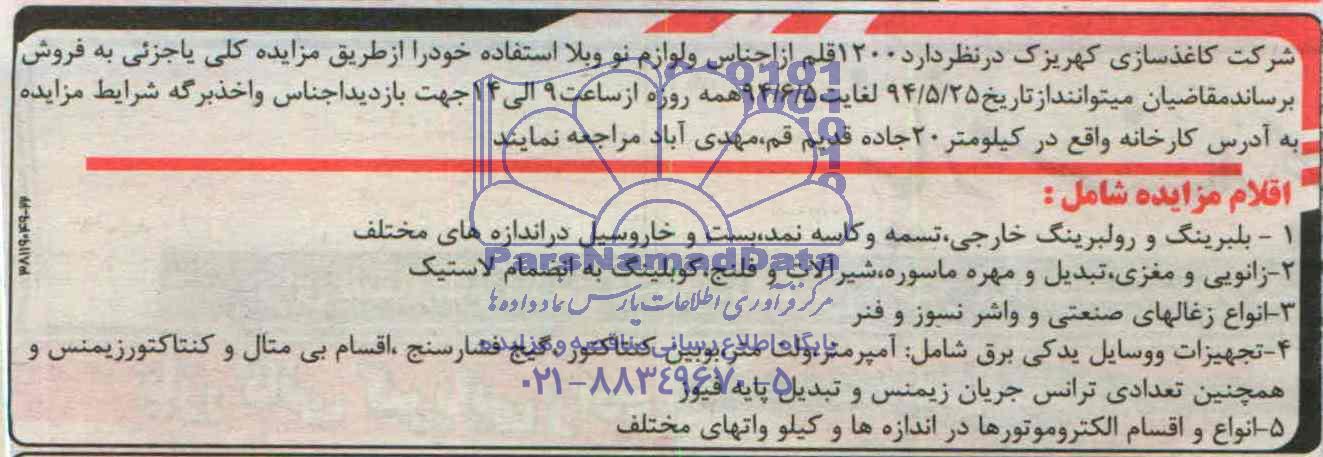 شرکت کاغذسازی کهریزک درنظردارد۱۲۰۰قلم ازاجناس ولوازم نو وبلا استفاده خودرا ازطریق مزایده کلی یاجزئی به فروش
برساندمقاضیان میتوانندازتاریخ۹۴/۵/۲۵ لغایت۹۴/۶/۵همه روزه ازساعت۹ الی۱۴جهت بازدیداجناس واخذبرگه شرایط مزایده
به آدرس کارخانه واقع در کیلومتر۲۰جاده قدیم قم،مهدی آباد مراجعه نمایند
اقلام مزایده شامل :
۱ - بلبرینگ و رولبرینگ خارجی،تسمه وکاسه نمد،بست و خاروسیل دراندازه های مختلف
ParsNamadData
۲-زانویی و مغزی،تبدیل و مهره ماسوره،شیرآلات و فلنج،کوبلینگ به انضمام لاستیک
مرکز فرآوری اطلاعات پارس نماد داده ها
۳-انواع زغالهای صنعتی و واشر نسوز و فنر
پایگاه اطلاع رسانی مناقصه و مزایده
۴-تجهیزات ووسایل یدکی برق شامل: آمپرمتر،ولت متر،بوبین کنتاکتور،گیج فشارسنج ،اقسام بی متال و کنتاکتورزیمنس و
همچنین تعدادی ترانس جریان زیمنس و تبدیل پایه فیوز
۰۲۱-۸۸۳۴۹۶۷۰-۵
۵-انواع و اقسام الکتروموتورها در اندازه ها و کیلو واتهای مختلف